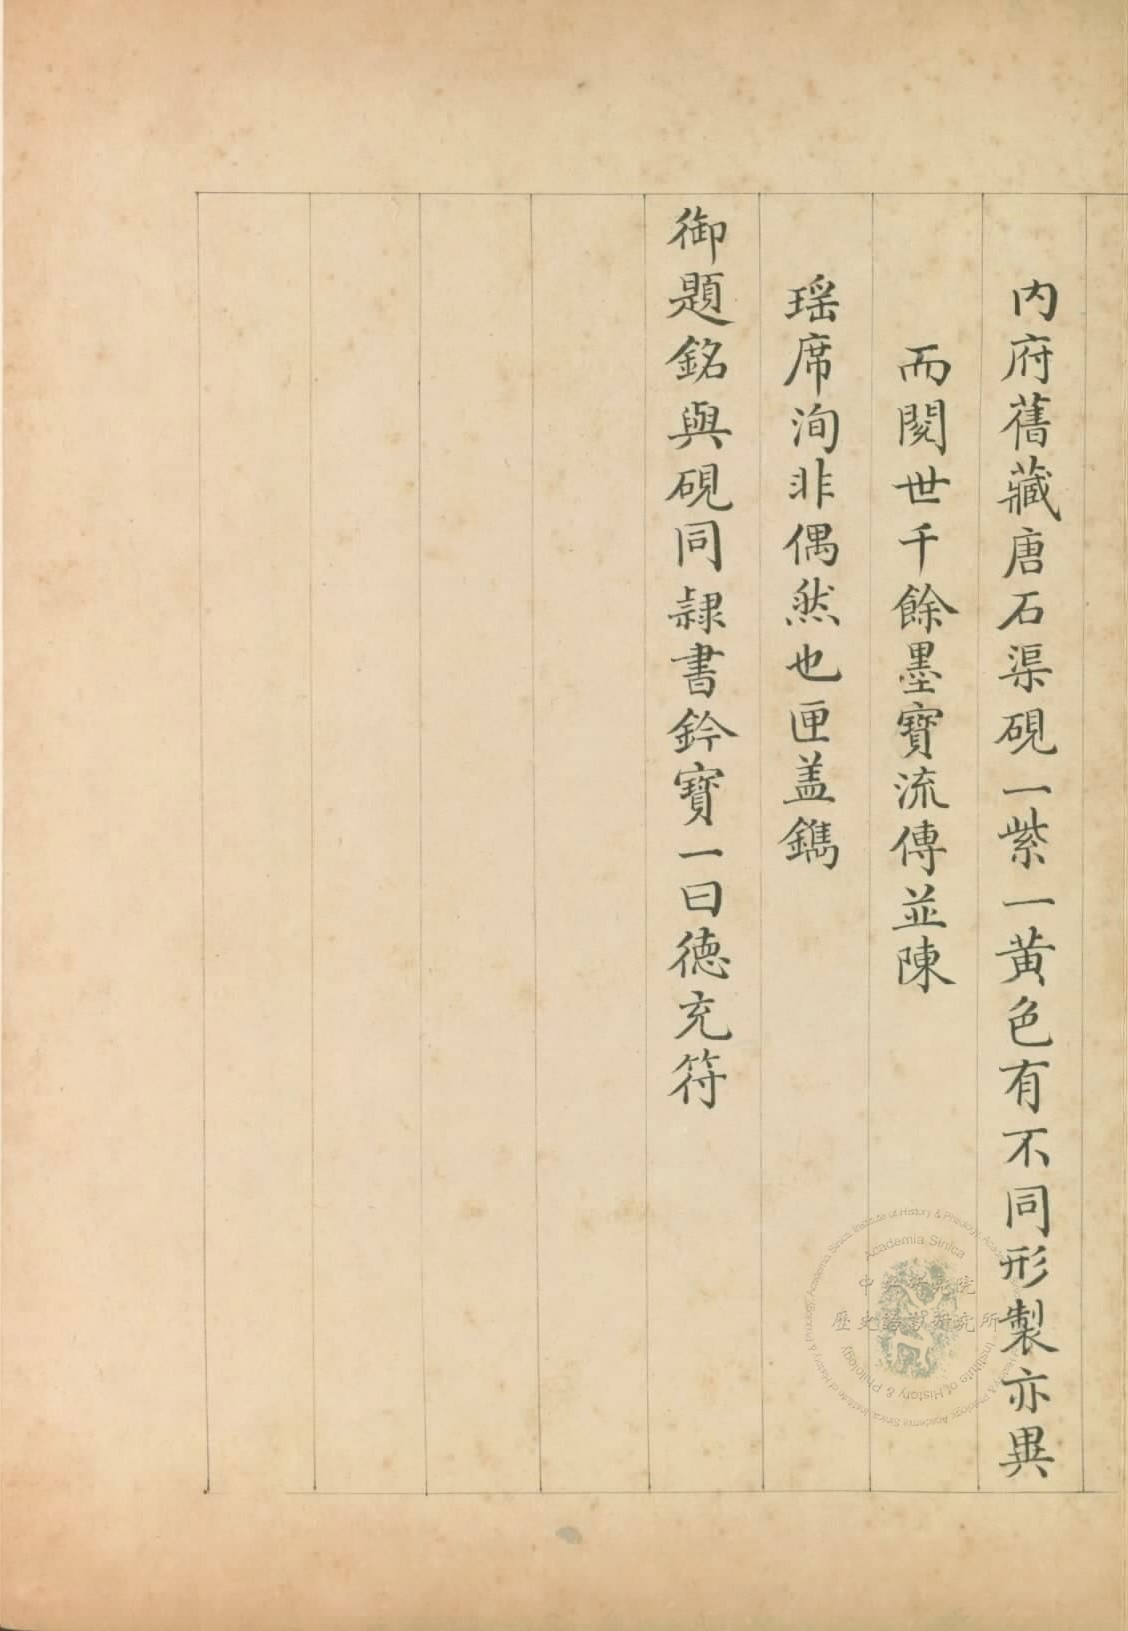 内府舊藏唐石渠硯一紫一黄色有不同形製亦異
而閱世千餘墨寶流傳並陳
瑶席洵非偶然也匣盖鐫
御題銘與硯同隷書鈐寶一曰德充符
Academia Sinica
中央研究院
歷史語言研究所
Institute of History & Philology